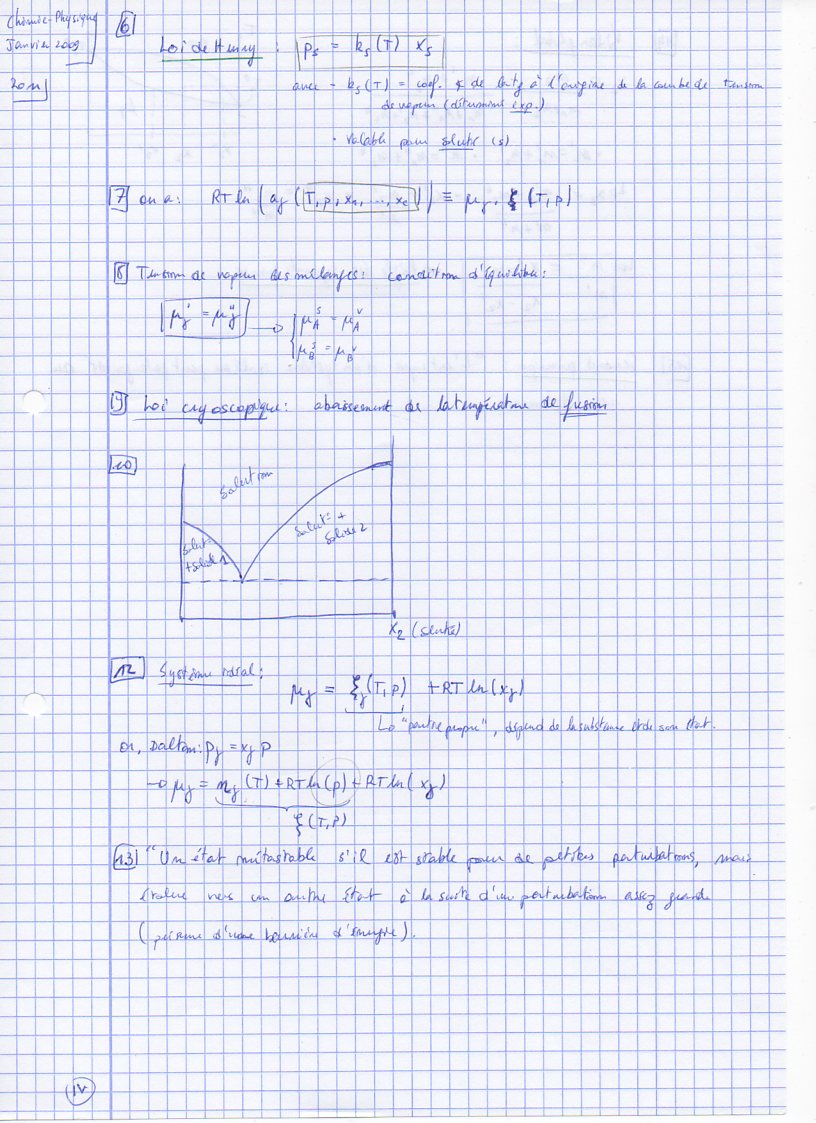 Chimie-Physique
Janvier 2009
6
Loi de Henry : ps = ks(T) xs
avec - ks(T) = coef. de la tg à l'origine de la courbe de tension
de vapeur (déterminé exp.)
valable pour soluté (s)
7 on a: RT ln (aγ (T, p, x1, ..., xc)) ≡ μγ - ξ (T, p)
8 Tension de vapeur des mélanges: condition d'équilibre:
μγ' = μγ"
μA^s = μA^v
μB^s = μB^v
9 Loi cryoscopique: abaissement de la température de fusion
10
Solution
Solut° + Solide 1
Solut° + Solide 2
x2 (soluté)
12 Système idéal:
μγ = ξγ(T, p) + RT ln(xγ)
↳ "partie propre", dépend de la substance et de son état.
or, Dalton: pγ = xγ p
→ μγ = ηγ(T) + RT ln(p) + RT ln(xγ)
ξ(T, p)
13 "Un état métastable s'il est stable pour de petites perturbations, mais
évolue vers un autre état à la suite d'une perturbation assez grande
(présence d'une barrière d'énergie).
IV